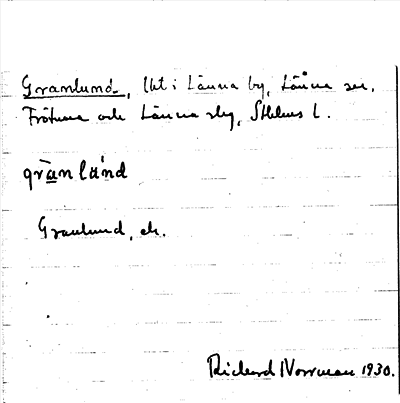 Granlund, lht i Länna by, Länna sn.
Frötuna och Länna skg, Sthlms l.
grànlánd
Granlund, ek.
Richard Norrman 1930.